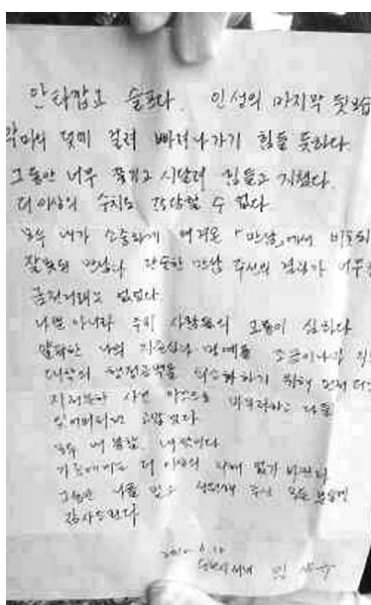 안타깝고 슬프다. 인생의 마지막 뒷모습
악마의 덫에 걸려 빠져나가기 힘들 듯하다.
그동안 너무 쫓기고 시달려 힘들고 지쳤다.
더 이상의 수치도 감당할 수 없다.
모두 내가 소중하게 여겨온 「만남」에서 비롯되
잘못된 만남과 단순한 만남 주선의 결과가 너무
금전거래는 없었다.
나뿐 아니라 주위 사람들의 고통이 심하다
알량한 나의 자존심과 명예를 조금이나마
대학의 행정공백을 최소화하기 위해 먼저
지저분한 사건 바라며 다들
잊어버리면 고맙겠다
모두 내 불찰, 내 탓이다
가족에게는 더 이상의 피해 없기 바란다
그동안 나를 믿고 성원해 주신 모든 분들께
감사드린다